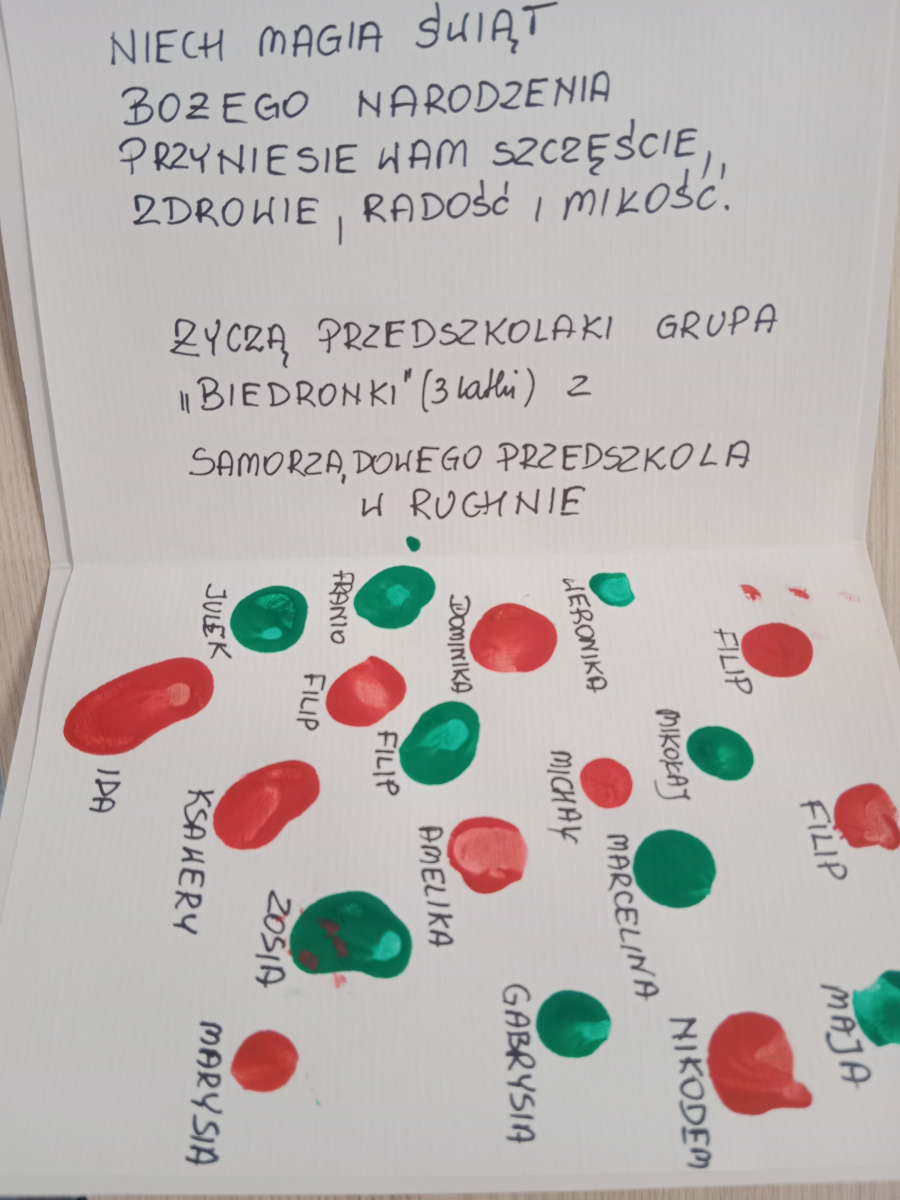 NIECH MAGIA ŚWIĄT
BOŻEGO NARODZENIA
PRZYNIESIE WAM SZCZĘŚCIE,,
ZDROWIE, RADOŚĆ I MIŁOŚĆ.
ŻYCZĄ PRZEDSZKOLAKI GRUPA
„BIEDRONKI" (3 latki) z
SAMORZĄDOWEGO PRZEDSZKOLA
W RUCHNIE
JULEK
FRANIO
DOMINIKA
WERONIKA
FILIP
IDA
FILIP
FILIP
MICHAŁ
MIKOŁAJ
FILIP
KSAWERY
AMELIKA
MARCELINA
ZOSIA
GABRYSIA
NIKODEM
MAJA
MARYSIA